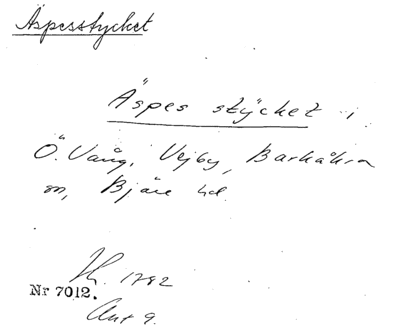 Äspesstycket
Äspes stycket i
Ö. Vång, Vejby, Barkåkra
sn, Bjäre hd.
1782
Nr 7012.
Akt 9.